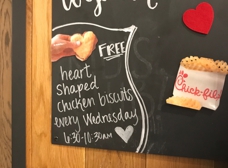 FREE
heart
shaped
chicken biscuits
every Wednesday
6:30-10:30am
Chick-fil